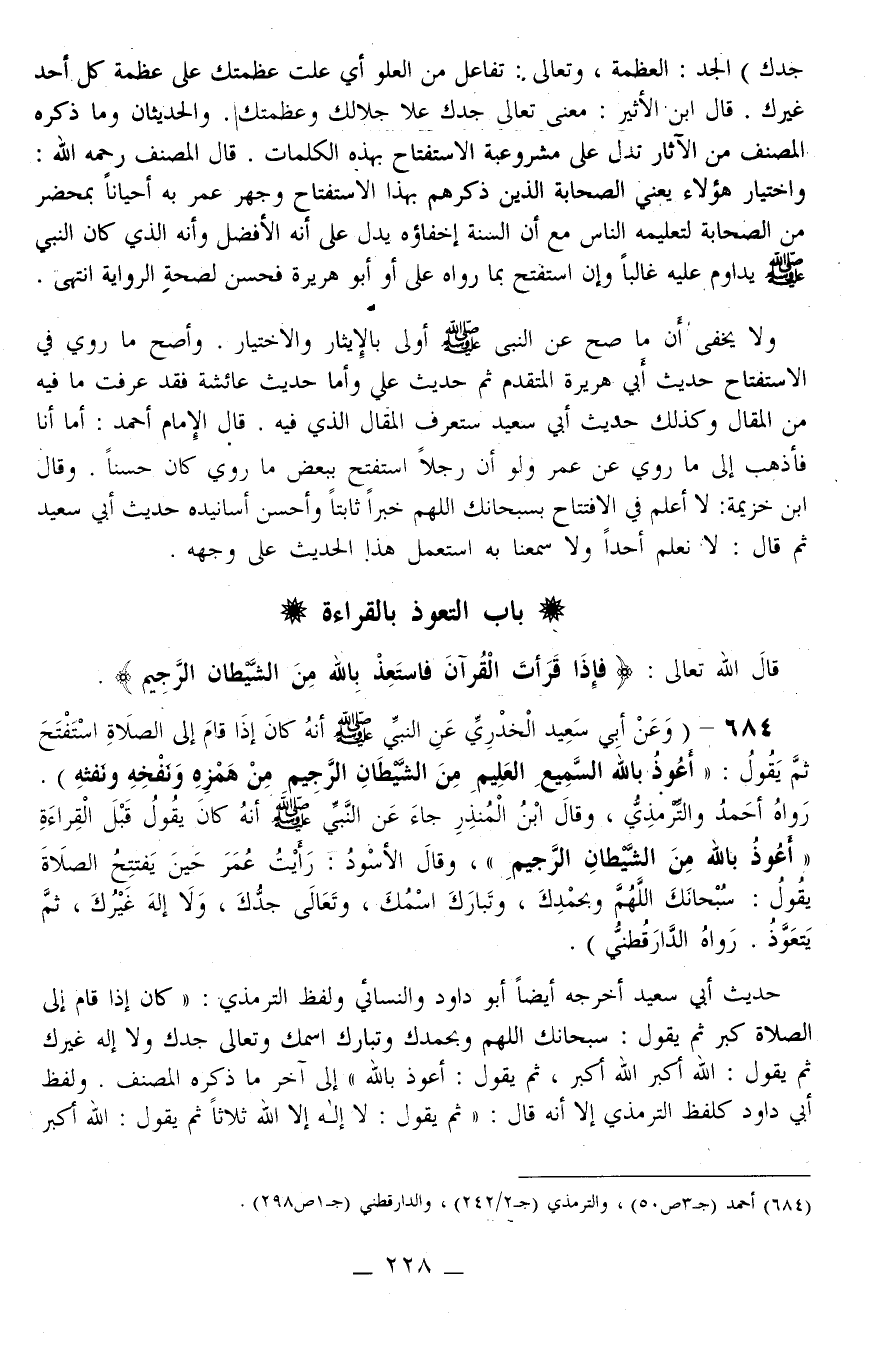 جدك ) الجد : العظمة ، وتعالى : تفاعل من العلو أي علت عظمتك على عظمة كل أحد
غيرك . قال ابن الأثير : معنى تعالى جدك علا جلالك وعظمتك . والحديثان وما ذكره
المصنف من الآثار تدل على مشروعية الاستفتاح بهذه الكلمات . قال المصنف رحمه الله :
واختيار هؤلاء يعني الصحابة الذين ذكرهم بهذا الاستفتاح وجهر عمر به أحياناً بمحضر
من الصحابة لتعليمه الناس مع أن السنة إخفاؤه يدل على أنه الأفضل وأنه الذي كان النبي
ﷺ يداوم عليه غالباً وإن استفتح بما رواه على أو أبو هريرة فحسن لصحة الرواية انتهى .
ولا يخفى أَن ما صح عن النبى ﷺ أولى بالإيثار والاختيار . وأصح ما روي في
الاستفتاح حديث أبي هريرة المتقدم ثم حديث علي وأما حديث عائشة فقد عرفت ما فيه
من المقال وكذلك حديث أبي سعيد ستعرف المقال الذي فيه . قال الإمام أحمد : أما أنا
فأذهب إلى ما روي عن عمر ولو أن رجلاً استفتح ببعض ما روي كان حسناً . وقال
ابن خزيمة: لا أعلم في الافتتاح بسبحانك اللهم خبراً ثابتاً وأحسن أسانيده حديث أبي سعيد
ثم قال : لا نعلم أحداً ولا سمعنا به استعمل هذا الحديث على وجهه .
باب التعوذ بالقراءة
قالَ الله تعالى : ﴿ فإِذَا قَرَأتَ الْقُرآنَ فاستَعِذْ بِالله مِنَ الشَّيْطان الرَّجيم ﴾ .
٦٨٤ – ( وَعَنْ أبِي سَعِيد الْخدْرِيِّ عَنِ النبيِّ ﷺ أنهُ كانَ إذَا قامَ إلى الصلاَةِ اسْتَفْتَحَ
ثمَّ يَقُولُ : « أَعُوذُ بالله السَّمِيعِ العَلِيمِ مِنَ الشَّيْطَانِ الرَّجِيمِ مِنْ هَمْزِهِ وَنَفْخِهِ ونَفثهِ ) .
رَوَاهُ أحمَدُ والتِّرْمذِيُّ ، وقالَ ابْنُ الْمُنذِرِ جاءَ عَن النَّبيِّ ﷺ أنهُ كانَ يقُولُ قَبْلَ الْقِراءَةِ
« أَعُوذُ بالله مِنَ الشَّيْطانِ الرَّجيمِ » ، وقالَ الأسْودُ : رَأَيْتُ عُمَرَ حَينَ يَفتتِحُ الصلَاةَ
يقُولُ : سُبْحانَكَ اللَّهُمَّ وبحمْدِكَ ، وتَبارَكَ اسْمُكَ ، وتَعَالَى جدُّكَ ، وَلَا إلهَ غَيْرُكَ ، ثمَّ
يَتعَوَّذُ . رَواهُ الدَّارَقُطنيُّ ) .
حديث أبي سعيد أخرجه أيضاً أبو داود والنسائي ولفظ الترمذي : « كان إذا قام إلى
الصلاة كبر ثم يقول : سبحانك اللهم وبحمدك وتبارك اسمك وتعالى جدك ولا إله غيرك
ثم يقول : الله أكبر الله أكبر ، ثم يقول : أعوذ بالله » إلى آخر ما ذكره المصنف . ولفظ
أبي داود كلفظ الترمذي إلا أنه قال : « ثم يقول : لا إله إلا الله ثلاثاً ثم يقول : الله أكبر
(٦٨٤) أحمد (جـ٣ص٥٠) ، والترمذي (جـ٢/ ٢٤٢) ، والدارقطني (جـ١ص٢٩٨) .
_ ٢٢٨ _